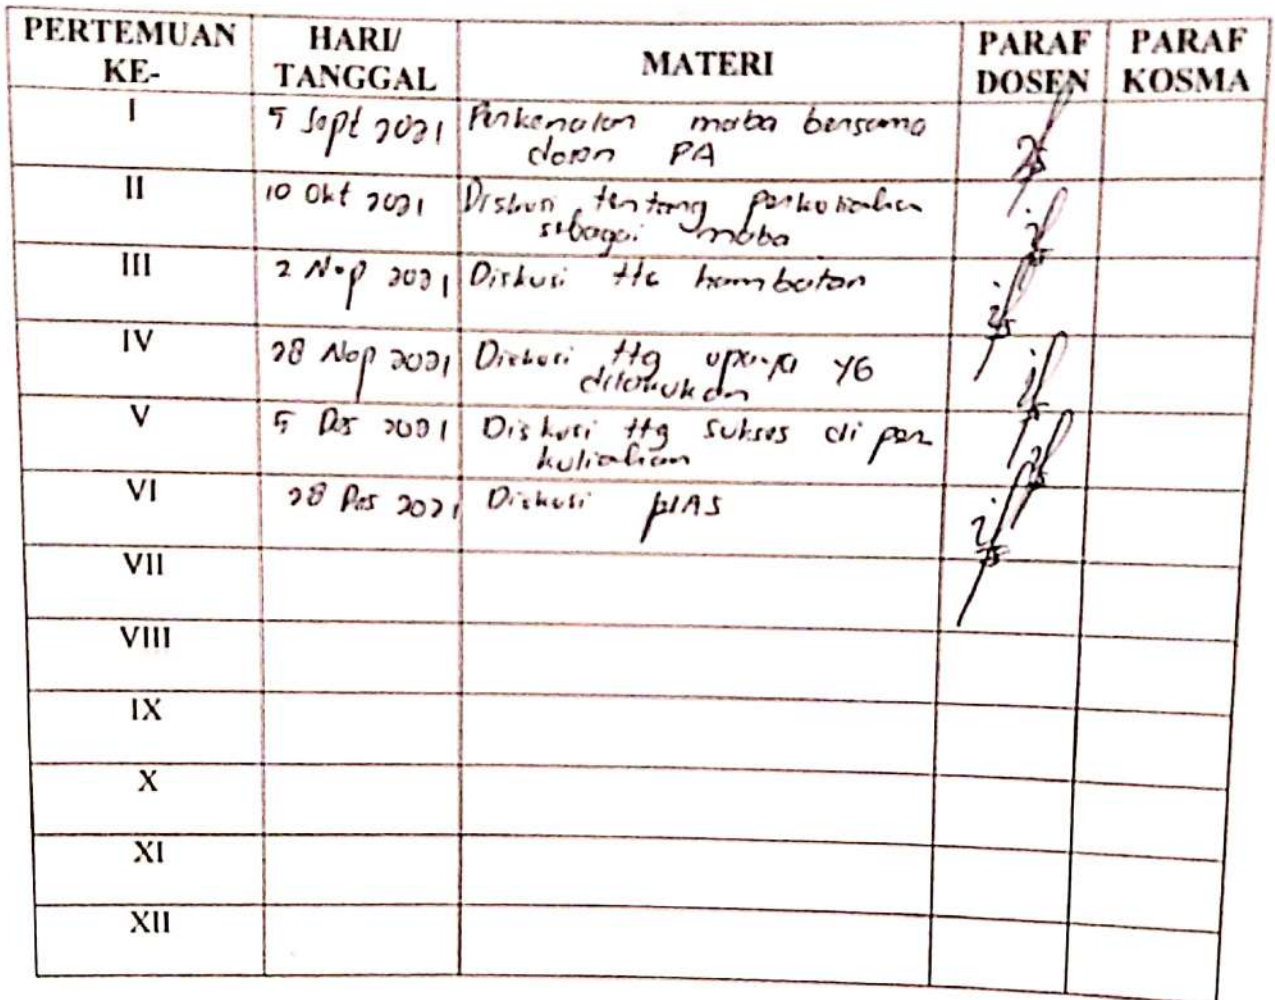 PERTEMUAN KE- HARI/ TANGGAL MATERI PARAF DOSEN PARAF KOSMA
I 5 Sept 2021 Perkenalan maba bersama
dosen PA
II 10 Okt 2021 Diskusi tentang perkuliahan
sebagai maba
III 2 Nop 2021 Diskusi ttg hambatan
IV 28 Nop 2021 Diskusi ttg upaya YG
dilakukan
V 5 Des 2021 Diskusi ttg sukses di per
kuliahan
VI 28 Des 2021 Diskusi
VII
VIII
IX
X
XI
XII